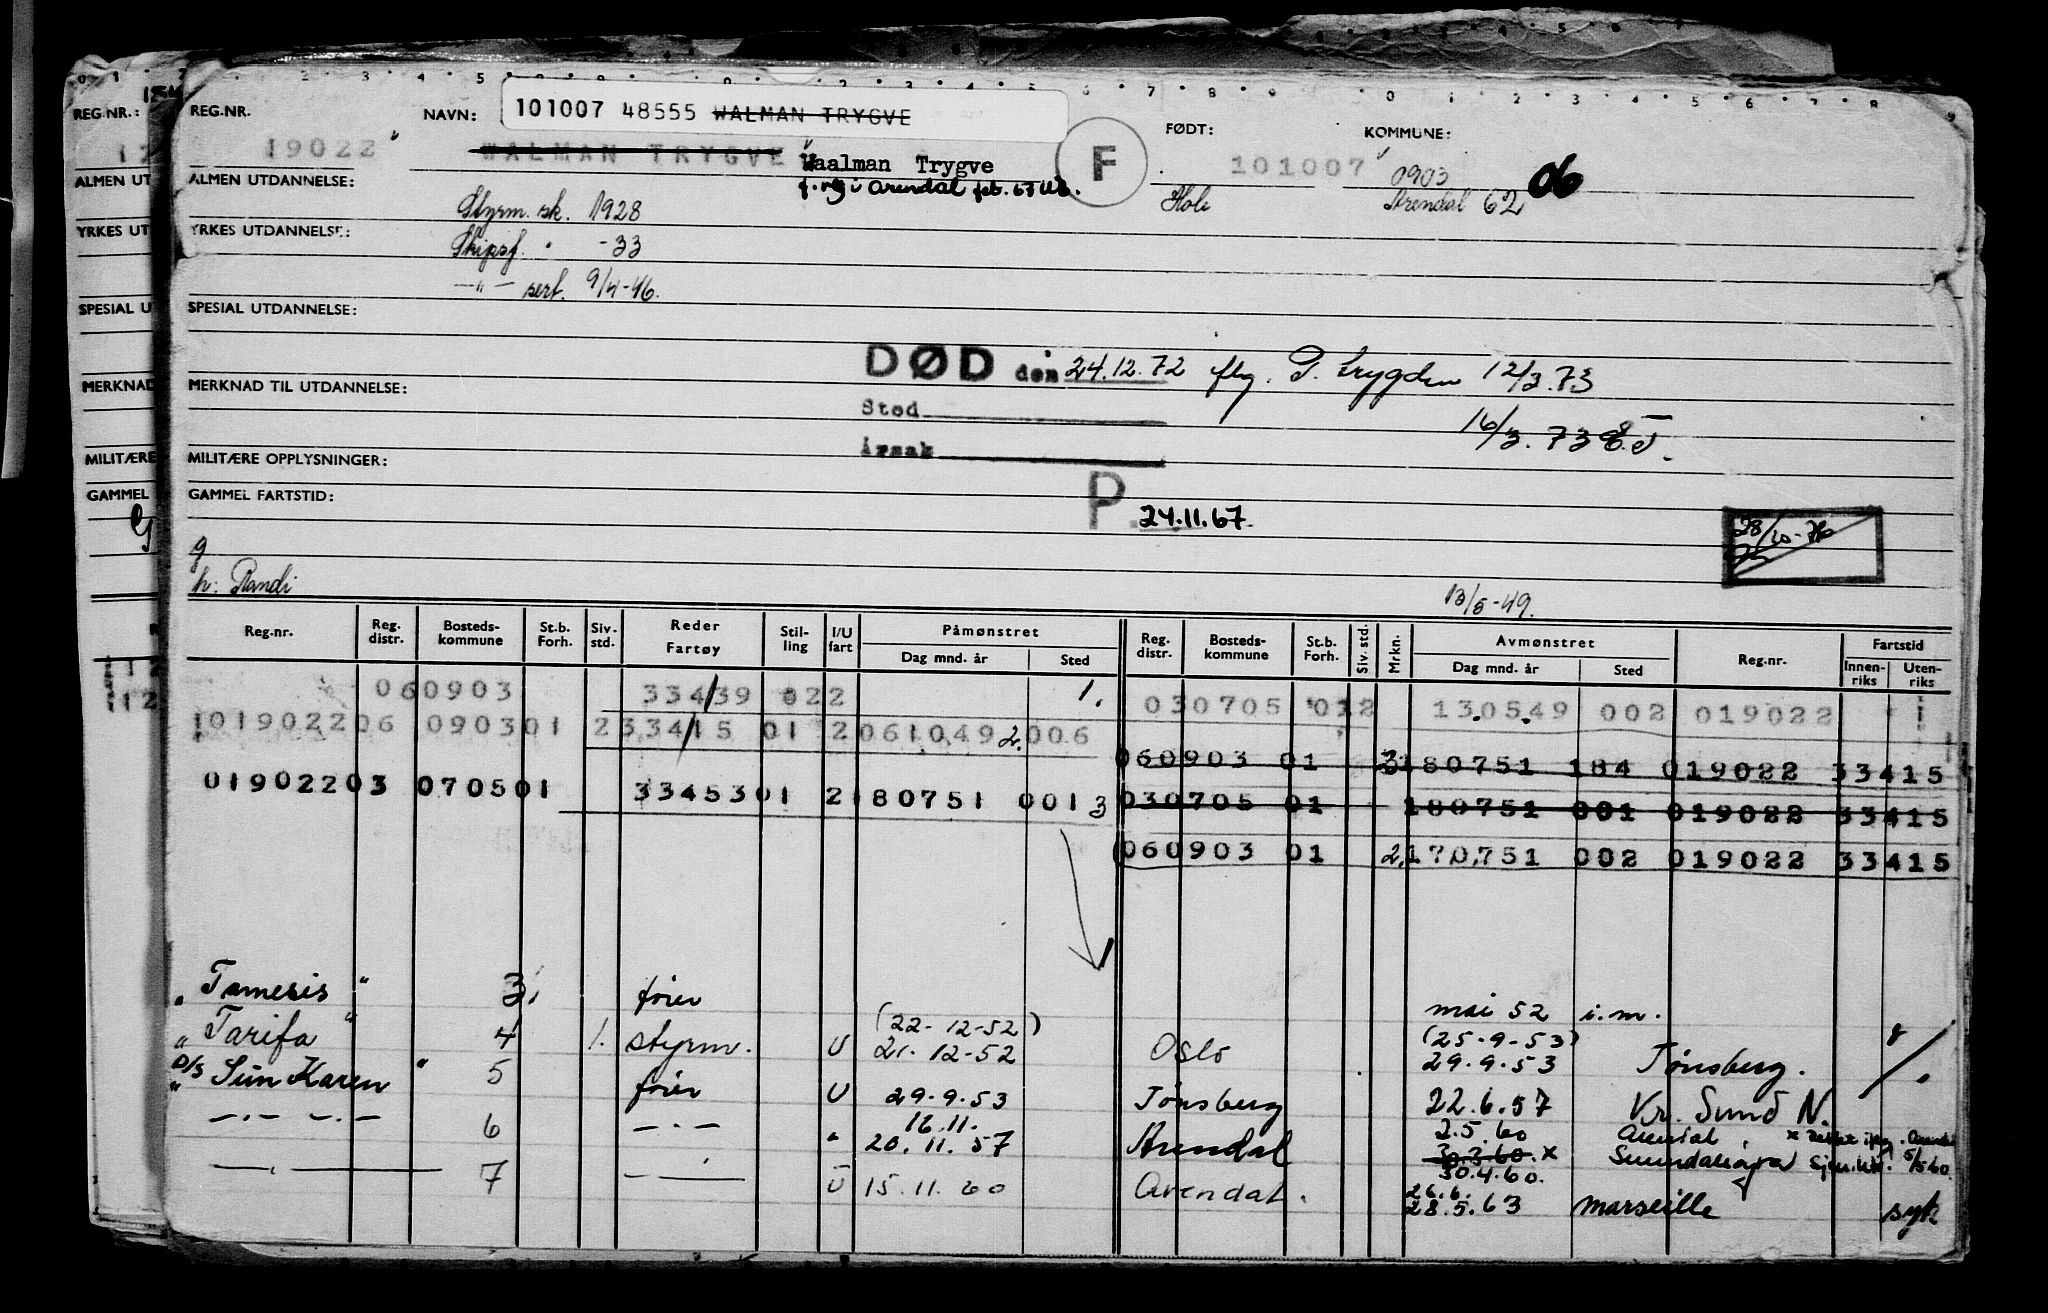 REG.NR.:
ALMEN UT
YRKES UT
SPESIAL U
MERKNAD
MILITÆRE
GAMMEL
REG.NR. NAVN: 101007 48555 WALMAN TRYGVE FØDT: KOMMUNE:
19022 WALMAN TRYGVE Waalman Trygve F 101007 0903
ALMEN UTDANNELSE: Arendal feb. 67 Hole Arendal 62 06
Styrm. sk. 1928
YRKES UTDANNELSE: Skipsf. " -33
—"— sert. 9/4-46.
SPESIAL UTDANNELSE:
DØD den 24.12.72 flg. 12/3.73
MERKNAD TIL UTDANNELSE: Sted
16/3.73
Årsak
MILITÆRE OPPLYSNINGER:
GAMMEL FARTSTID: P. 24.11.67
28/10-76
g
h: Randi
13/5-49.
Reg.nr. Reg. distr. Bosteds-kommune St.b. Forh. Siv. std. Reder Fartøy Stil-ling I/U fart Påmønstret Dag mnd. år Sted Reg. distr. Bosteds-kommune St.b. Forh. Siv. std. Mrkn. Avmønstret Dag mnd. år Sted Reg.nr. Fartstid Innen-riks Uten-riks
060903 33439 022 1. 030705 012 130549 002 019022
1019022 06 0903 01 2 33415 01 2 061049 2. 006
060903 01 3 180751 184 019022 33415
019022 03 0705 01 33453 01 2 180751 001 3 030705 01 180751 001 019022 33415
060903 01 2. 170751 002 019022 33415
" Tamesis " 3. fører mai 52 i.m.
" Tarifa " 4 1. styrm. U (22-12-52) 21.12-52 Oslo (25-9-53) 29.9.53 Tønsberg.
D/S " Sun Karen " 5 fører U 29.9.53 Tønsberg 22.6.57 Kr. Sund N.
—.— —.— 6 —.— " 16.11. 20.11.57 Arendal 2.5.60 30.3.60. x 30.4.60. Arendal 5/5 60
7 U 15.11.60 Arendal. 26.6. 28.5.63 Marseille syk